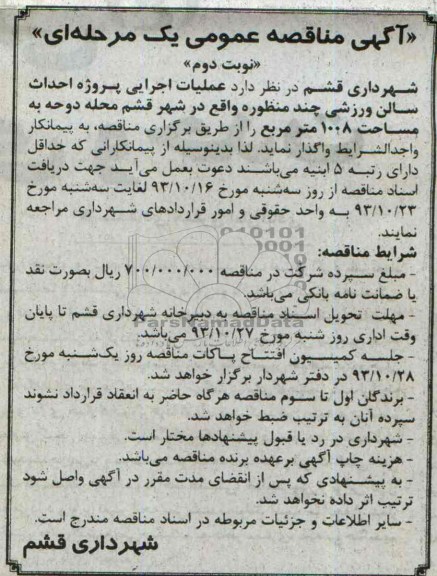 «آگهی مناقصه عمومی یک مرحله‌ای»
«نوبت دوم»
شهرداری قشم در نظر دارد عملیات اجرایی پروژه احداث
سالن ورزشی چند منظوره واقع در شهر قشم محله دوحه به
مساحت ۱۰۰۸ متر مربع را از طریق برگزاری مناقصه، به پیمانکار
واجدالشرایط واگذار نماید. لذا بدینوسیله از پیمانکارانی که حداقل
دارای رتبه ۵ ابنیه می‌باشند دعوت بعمل می‌آید جهت دریافت
اسناد مناقصه از روز سه‌شنبه مورخ ۹۳/۱۰/۱۶ لغایت سه‌شنبه مورخ
۹۳/۱۰/۲۳ به واحد حقوقی و امور قراردادهای شهرداری مراجعه
نمایند.
شرایط مناقصه:
- مبلغ سپرده شرکت در مناقصه ۷۰۰/۰۰۰/۰۰۰ ریال بصورت نقد
یا ضمانت نامه بانکی می‌باشد.
- مهلت تحویل اسناد مناقصه به دبیرخانه شهرداری قشم تا پایان
وقت اداری روز شنبه مورخ ۹۳/۱۰/۲۷ می‌باشد.
- جلسه کمیسیون افتتاح پاکات مناقصه روز یک‌شنبه مورخ
۹۳/۱۰/۲۸ در دفتر شهردار برگزار خواهد شد.
- برندگان اول تا سوم مناقصه هرگاه حاضر به انعقاد قرارداد نشوند
سپرده آنان به ترتیب ضبط خواهد شد.
- شهرداری در رد یا قبول پیشنهادها مختار است.
- هزینه چاپ آگهی برعهده برنده مناقصه می‌باشد.
- به پیشنهادی که پس از انقضای مدت مقرر در آگهی واصل شود
ترتیب اثر داده نخواهد شد.
- سایر اطلاعات و جزئیات مربوطه در اسناد مناقصه مندرج است.
شهرداری قشم
ParsNamadData